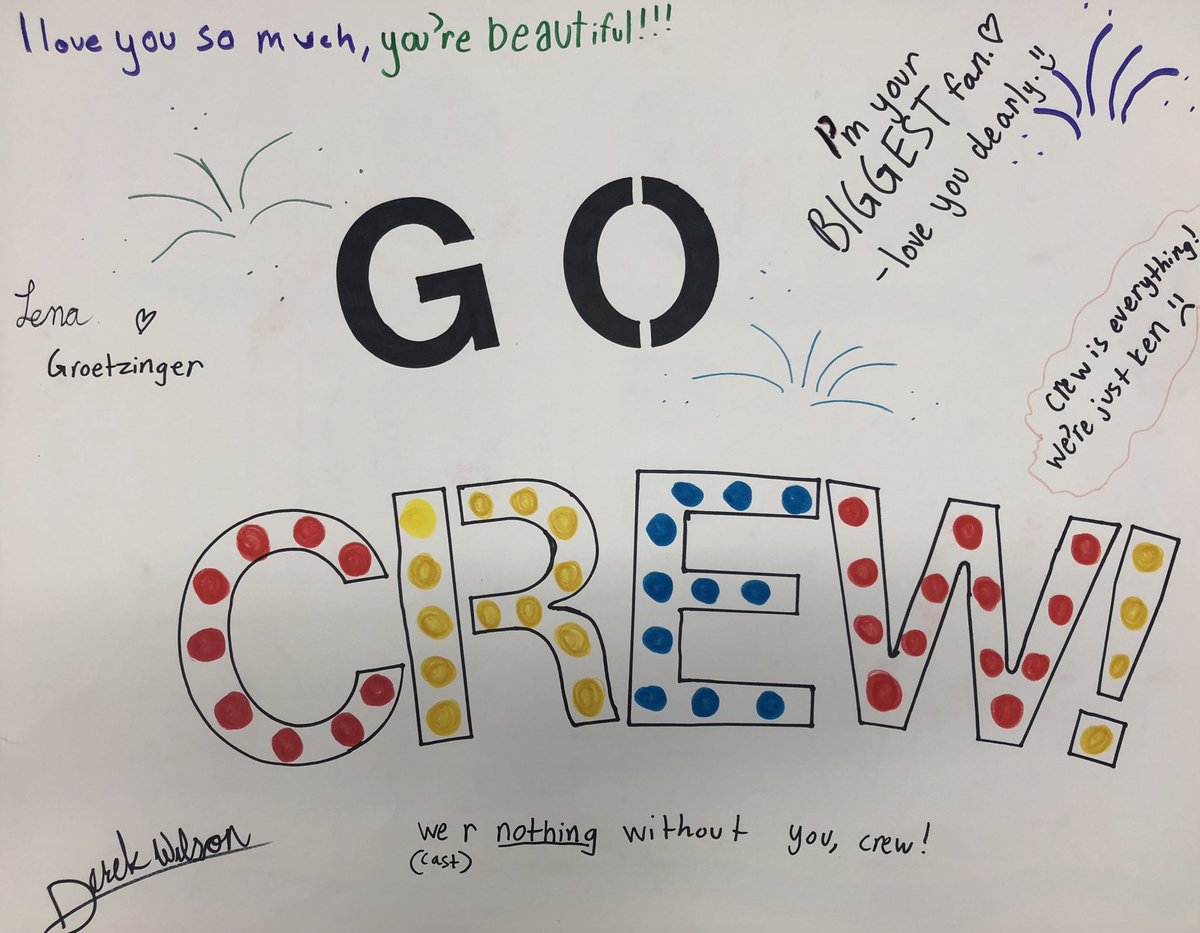 I love you so much, you're beautiful!!!
I'm your
BIGGEST fan. ♡
- love you dearly. :)
GO
Lena ♡
Groetzinger
Crew is everything!
We're just Ken :)
CREW!
we r nothing without you, crew!
(cast)
Derek Wilson